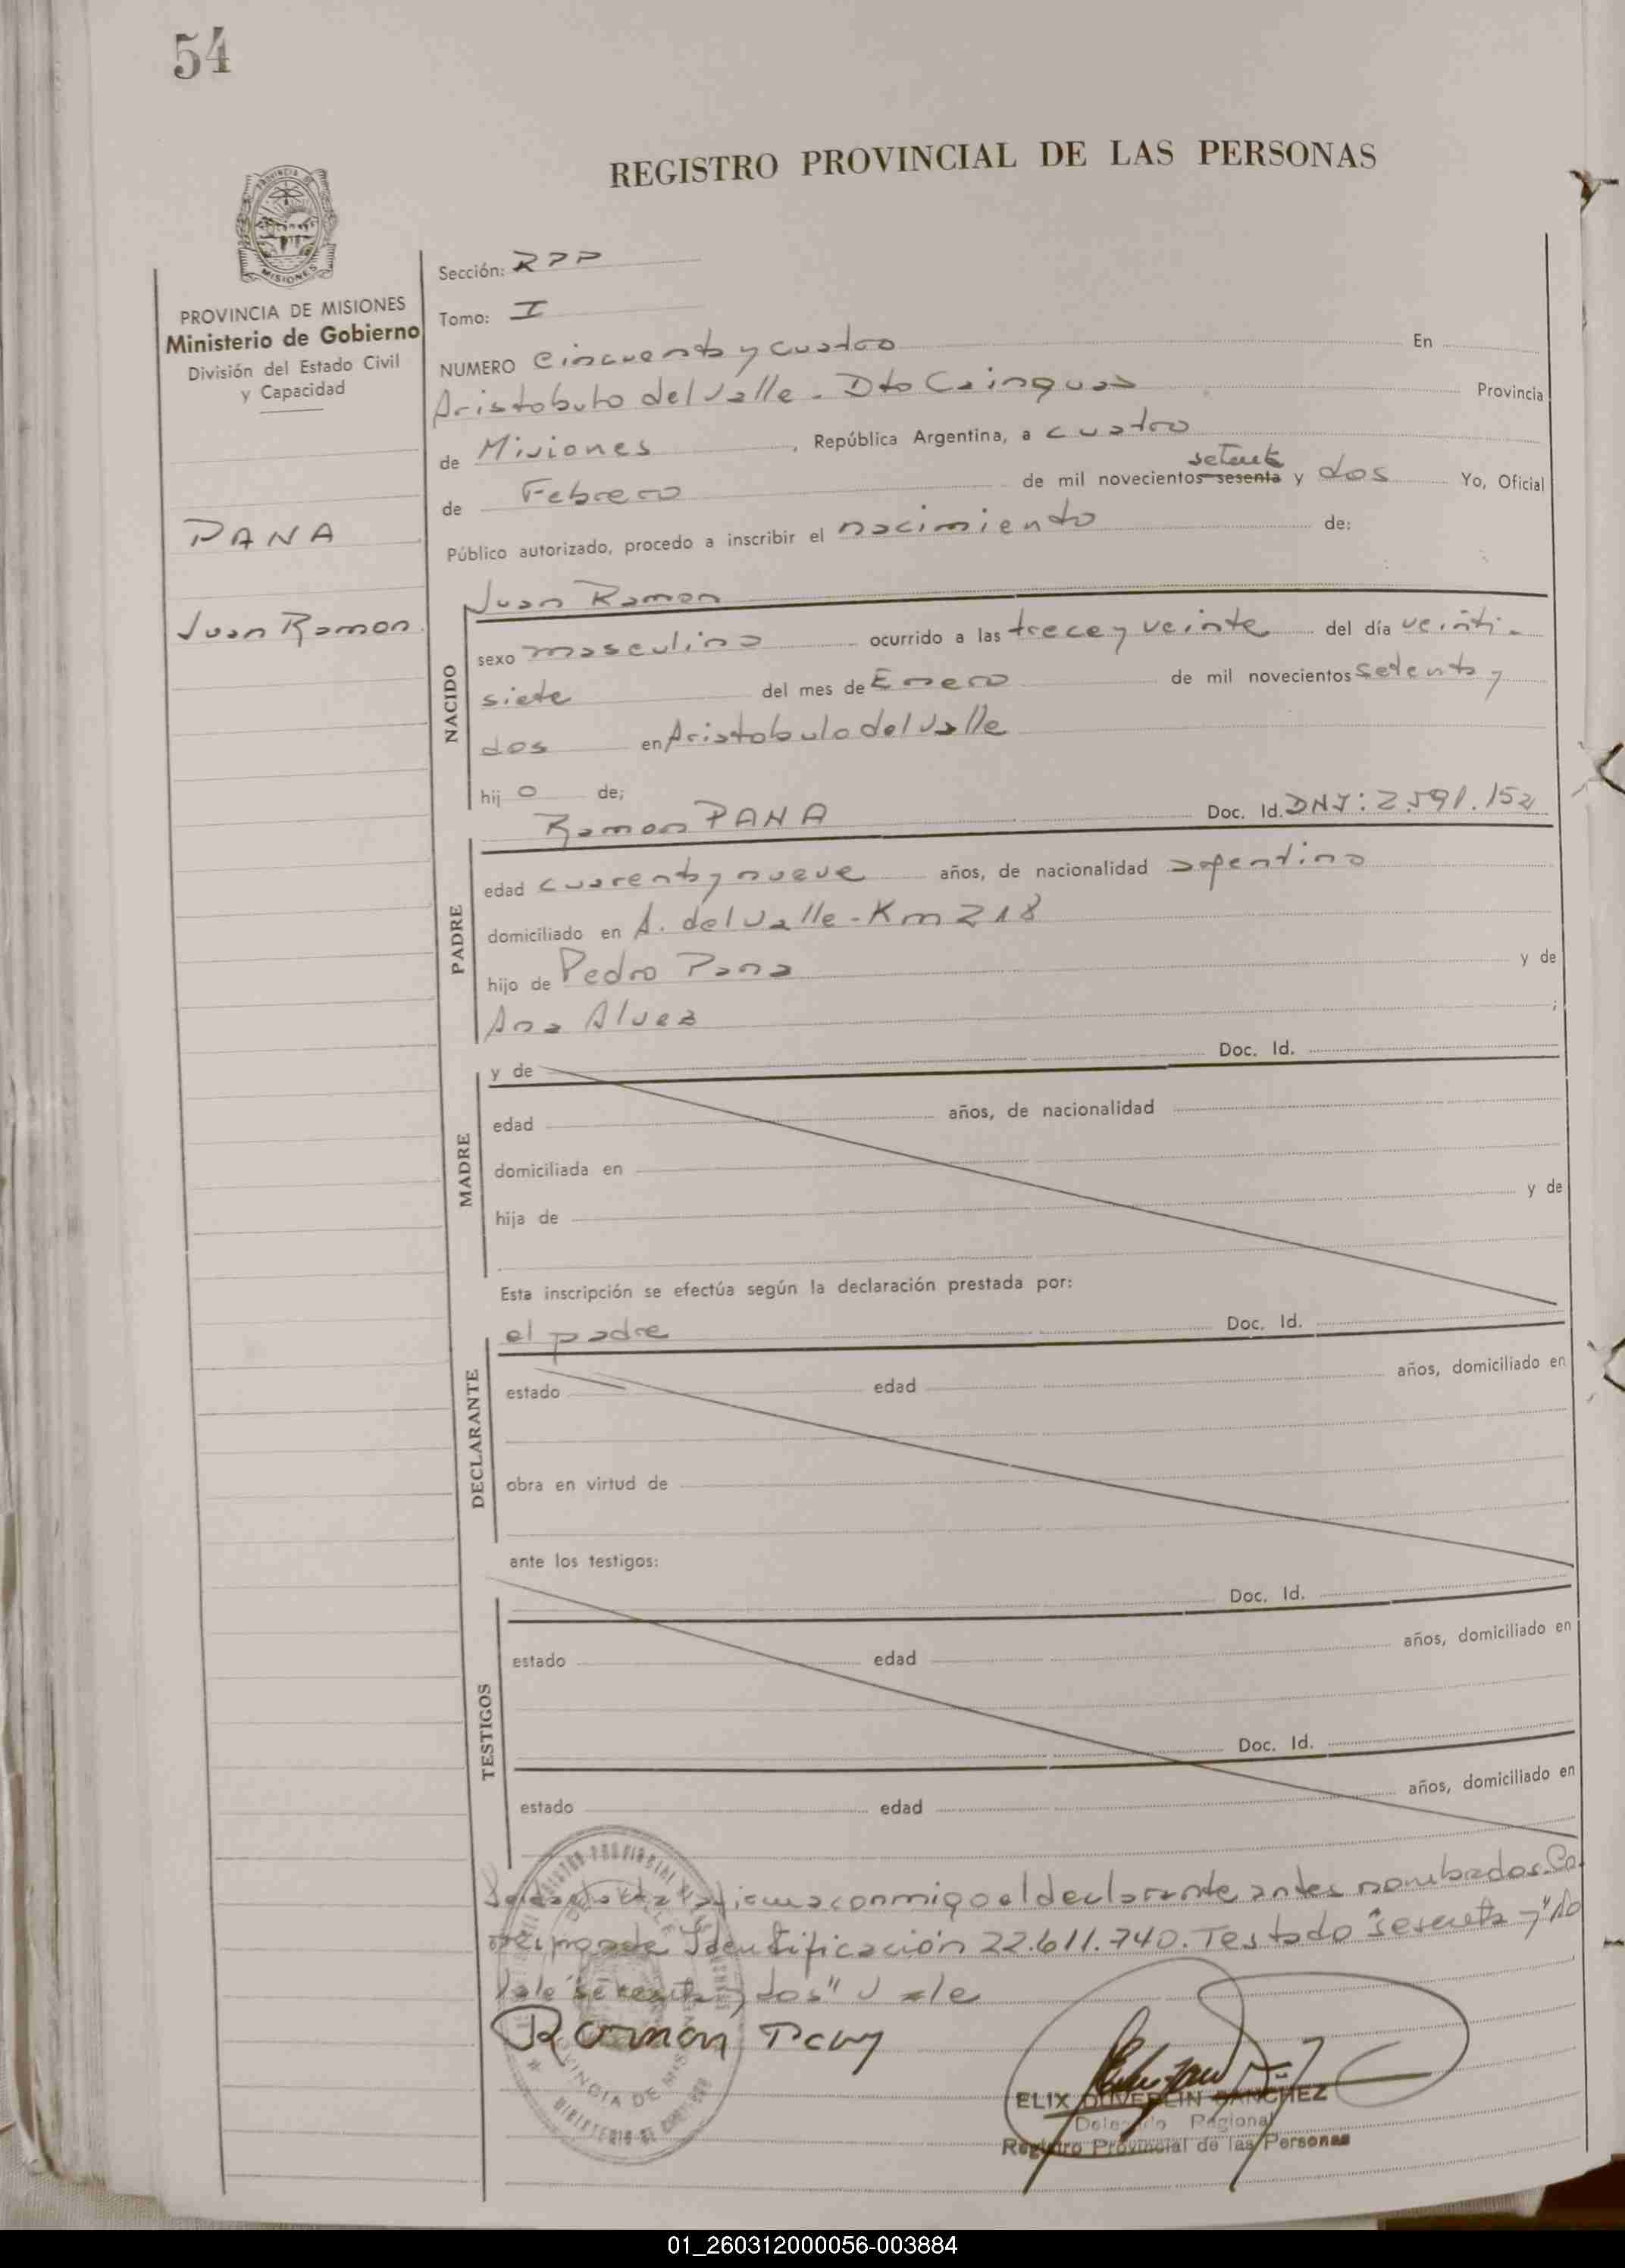 54
REGISTRO PROVINCIAL DE LAS PERSONAS
PROVINCIA DE MISIONES
Ministerio de Gobierno
División del Estado Civil
y Capacidad
PANA
Juan Ramon
Sección: RPP
Tomo: I
NUMERO cincuenta y cuatro En
Aristobulo del Valle - Dto Cainguas Provincia
de Misiones, República Argentina, a cuatro
setenta
de Febrero de mil novecientos sesenta y dos Yo, Oficial
Público autorizado, procedo a inscribir el nacimiento de:
Juan Ramon
NACIDO
sexo masculino ocurrido a las trece y veinte del día veinti-
siete del mes de Enero de mil novecientos setenta y
dos en Aristobulo del Valle
hijo de;
Ramon PANA Doc. Id. DNI: 2.591.152
PADRE
edad cuarenta y nueve años, de nacionalidad argentino
domiciliado en A. del Valle - Km 218
hijo de Pedro Pana y de
Ana Alvez ;
y de Doc. Id.
MADRE
edad años, de nacionalidad
domiciliada en
hija de y de
Esta inscripción se efectúa según la declaración prestada por:
el padre Doc. Id.
DECLARANTE
estado edad años, domiciliado en
obra en virtud de
ante los testigos:
Doc. Id.
TESTIGOS
estado edad años, domiciliado en
Doc. Id.
estado edad años, domiciliado en
conmigo el declarante antes nombrados. Co
Identificación 22.611.740. Testado "sesenta y" No
Vale "setenta y dos" Vale
Ramon
ELIX OLIVERLIN SANCHEZ
Delegado Regional
Registro Provincial de las Personas
01_260312000056-003884